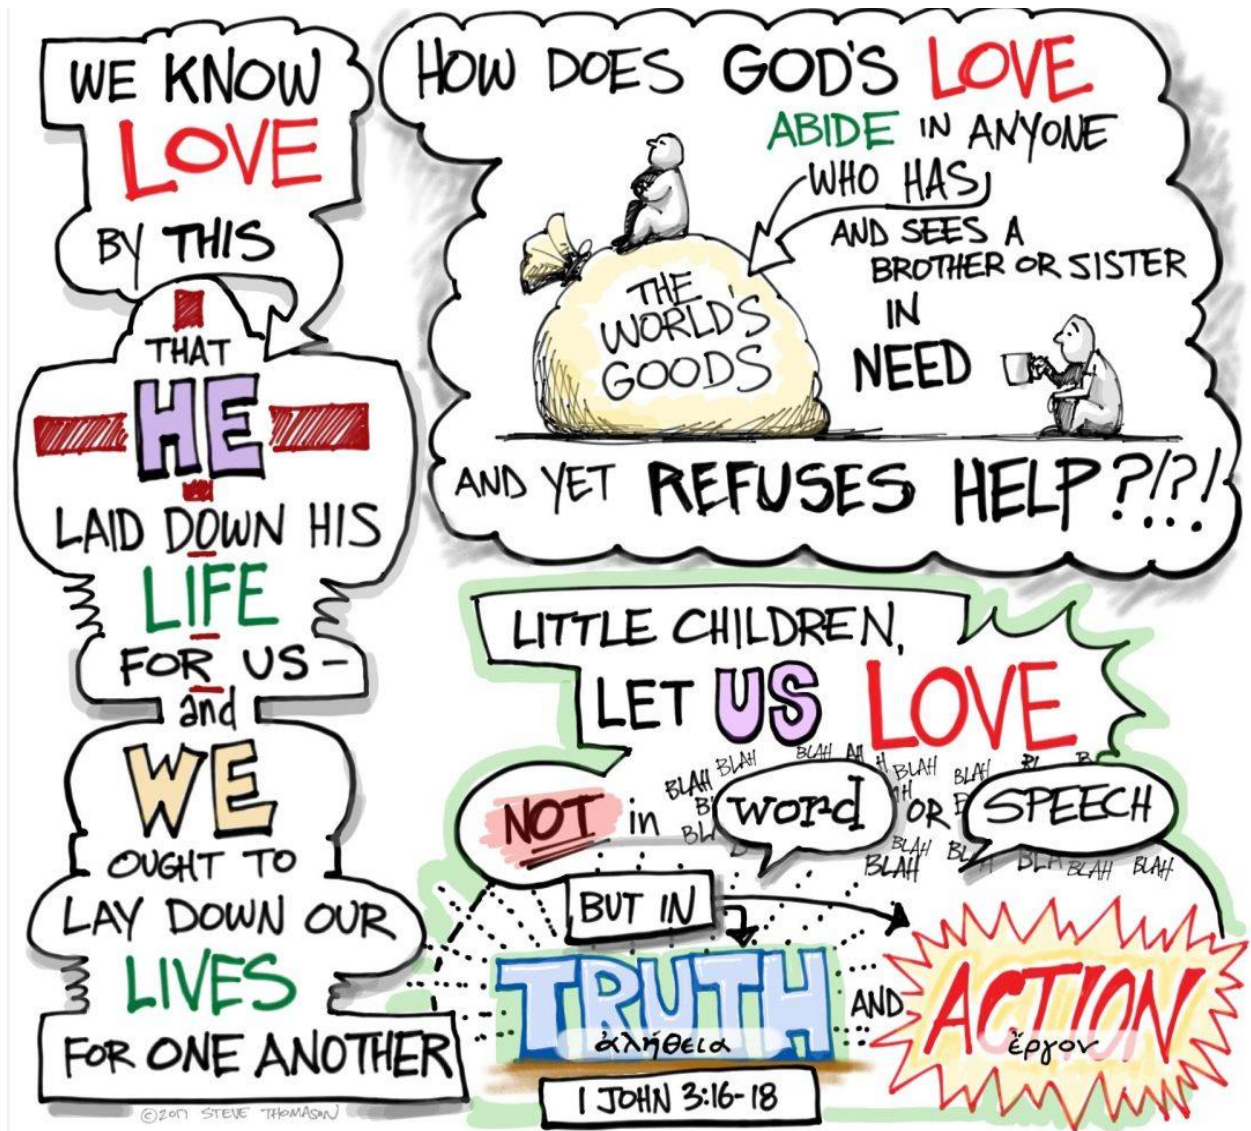 WE KNOW
LOVE
BY THIS
THAT
HE
LAID DOWN HIS
LIFE
FOR US -
and
WE
OUGHT TO
LAY DOWN OUR
LIVES
FOR ONE ANOTHER
©2017 STEVE THOMASON
HOW DOES GOD'S LOVE
ABIDE IN ANYONE
WHO HAS
THE
WORLD'S
GOODS
AND SEES A
BROTHER OR SISTER
IN
NEED
AND YET REFUSES HELP?!?!...
LITTLE CHILDREN,
LET US LOVE
BLAH BLAH BLAH BLAH BLAH
NOT in word OR SPEECH
BLAH BLAH BLAH BLAH BLAH
BUT IN
TRUTH AND ACTION
ἀλήθεια ἔργον
1 JOHN 3:16-18